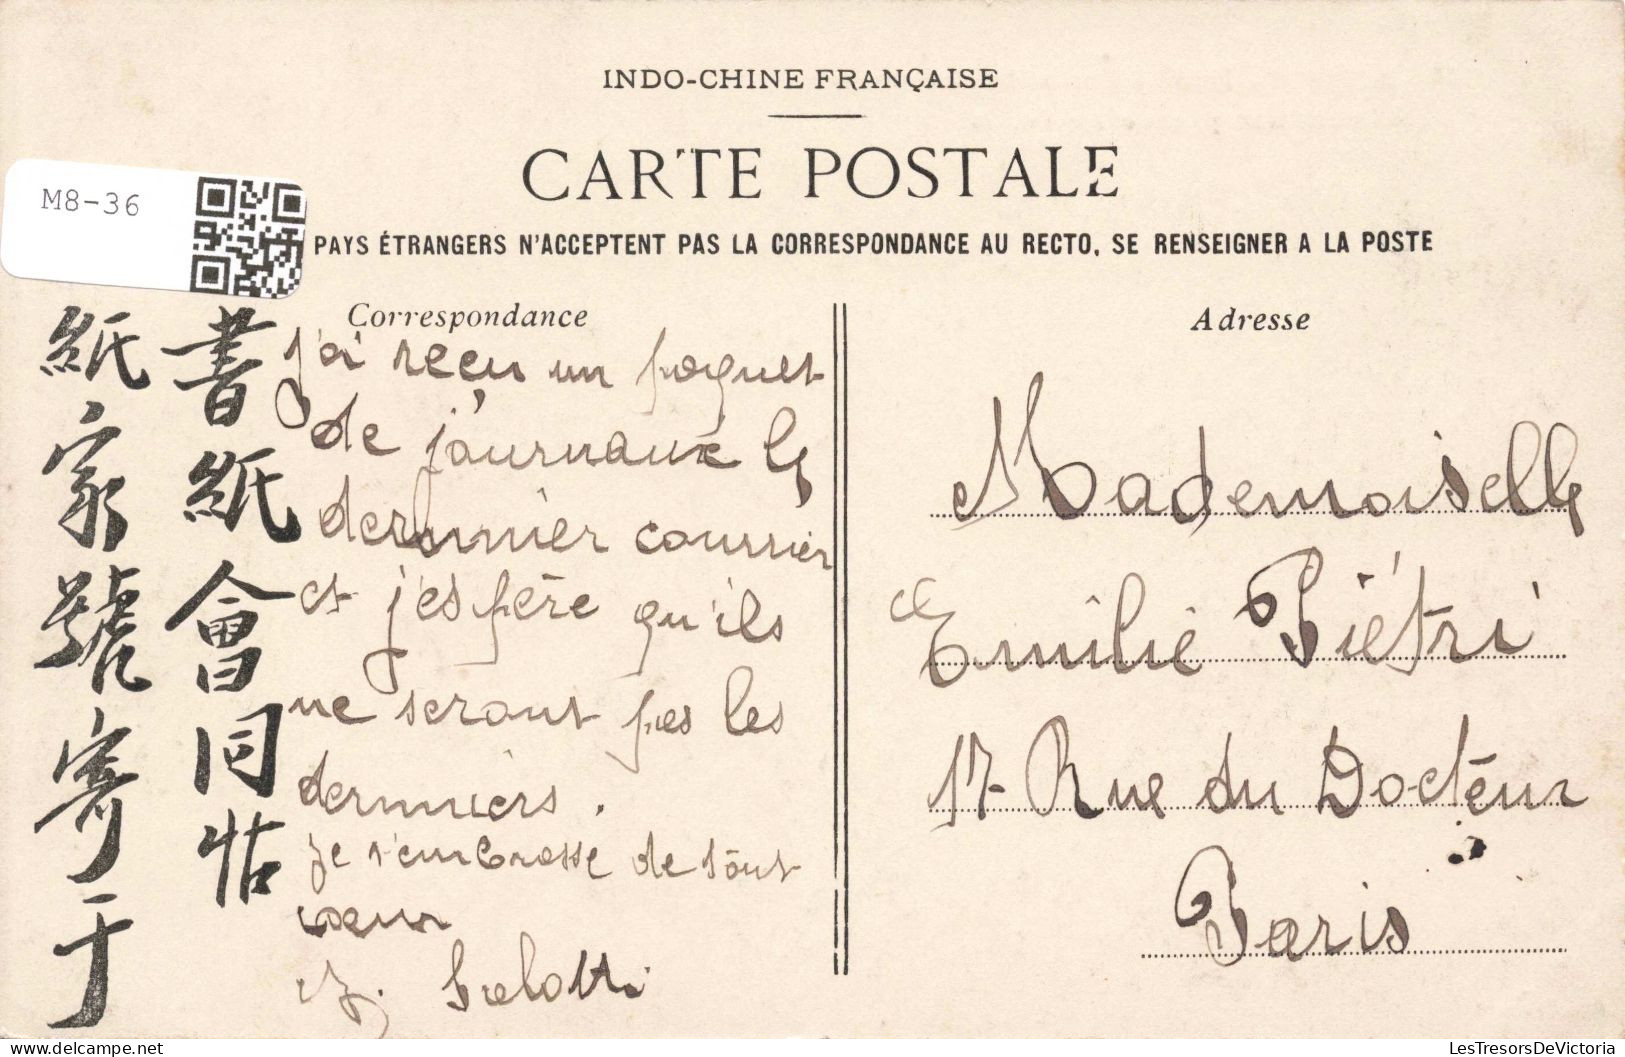 INDO-CHINE FRANÇAISE
CARTE POSTALE
M8-36
PAYS ÉTRANGERS N'ACCEPTENT PAS LA CORRESPONDANCE AU RECTO, SE RENSEIGNER A LA POSTE
Correspondance
Adresse
書紙會同
紙家號寄于
j'ai reçu un paquet
de journaux le
dernnier courrier
et j'éspére qu'ils
ne seront pas les
dernniers.
je t'embrasse de tout
coeur
Mademoiselle
Emilie Piétri
17 Rue du Docteur
Paris
LesTresorsDeVictoria